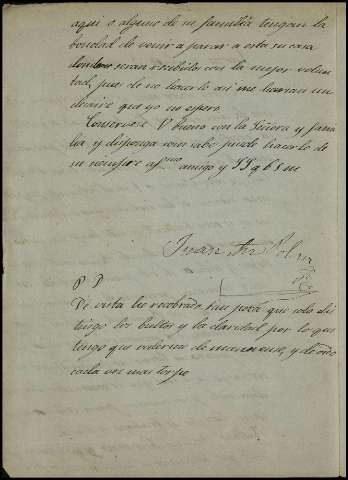 aqui o alguno de su familia tengan la
bondad de venir a parar a esta su casa
donde seran recibidos con la mejor volun
tad, pues de no hacerlo asi me harian un
desaire que yo no espero.
Conservese V bueno con la Señora y fami
lia y disponga como sabe puede hacerlo de
su siempre afmo amigo y SS q b s m
Juan
P D
De vista he recobrado tan poca que solo dis
tingo los bultos y la claridad por lo que
tengo que valerme de amanuense, y de mo
cada vez mas torpe